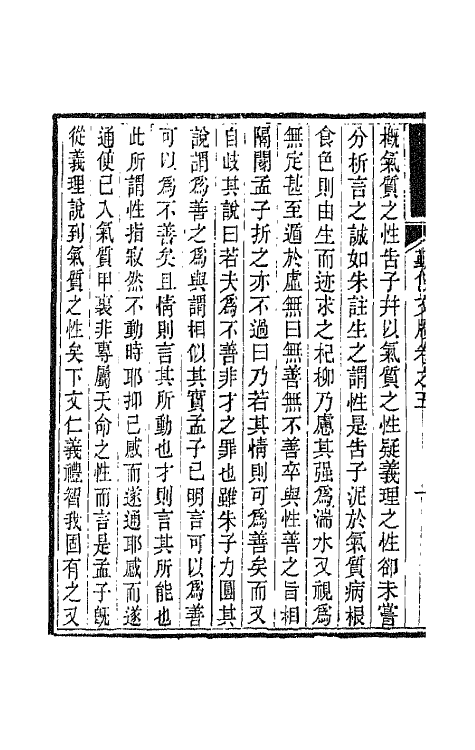 概氣質之性告子幷以氣質之性疑義理之性卻未嘗
分析言之誠如朱註生之謂性是告子泥於氣質病根
食色則由生而迹求之杞柳乃慮其强爲湍水又視爲
無定甚至遁於虛無曰無善無不善卒與性善之旨相
隔閡孟子折之亦不過曰乃若其情則可爲善矣而又
自歧其說曰若夫爲不善非才之罪也雖朱子力圓其
說謂爲善之爲與謂相似其實孟子已明言可以爲善
可以爲不善矣且情則言其所動也才則言其所能也
此所謂性指寂然不動時耶抑已感而遂通耶感而遂
通便已入氣質甲裏非專屬天命之性而言是孟子旣
從義理說到氣質之性矣下文仁義禮智我固有之又